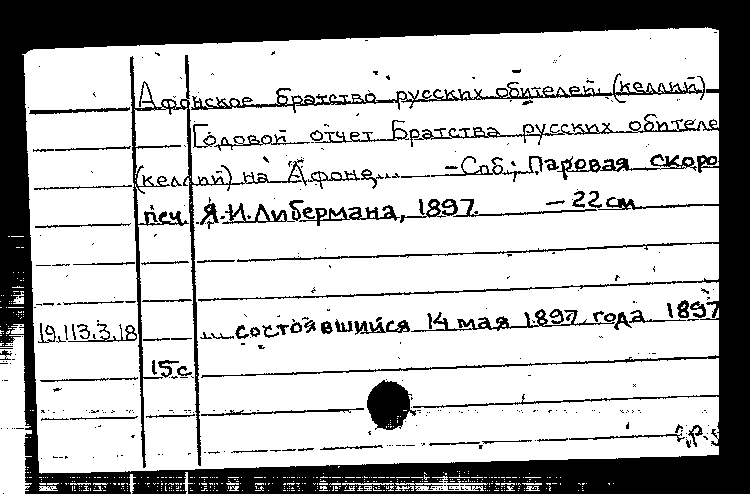 Афонское братство русских обителей (келлий)
Годовой отчет Братства русских обителе
(келлий) на Афоне... - Спб.; Паровая скоро
печ. Я.И.Либермана, 1897. - 22 см
19.113.3.18 ... состоявшийся 14 мая 1897 года 1897
15 с